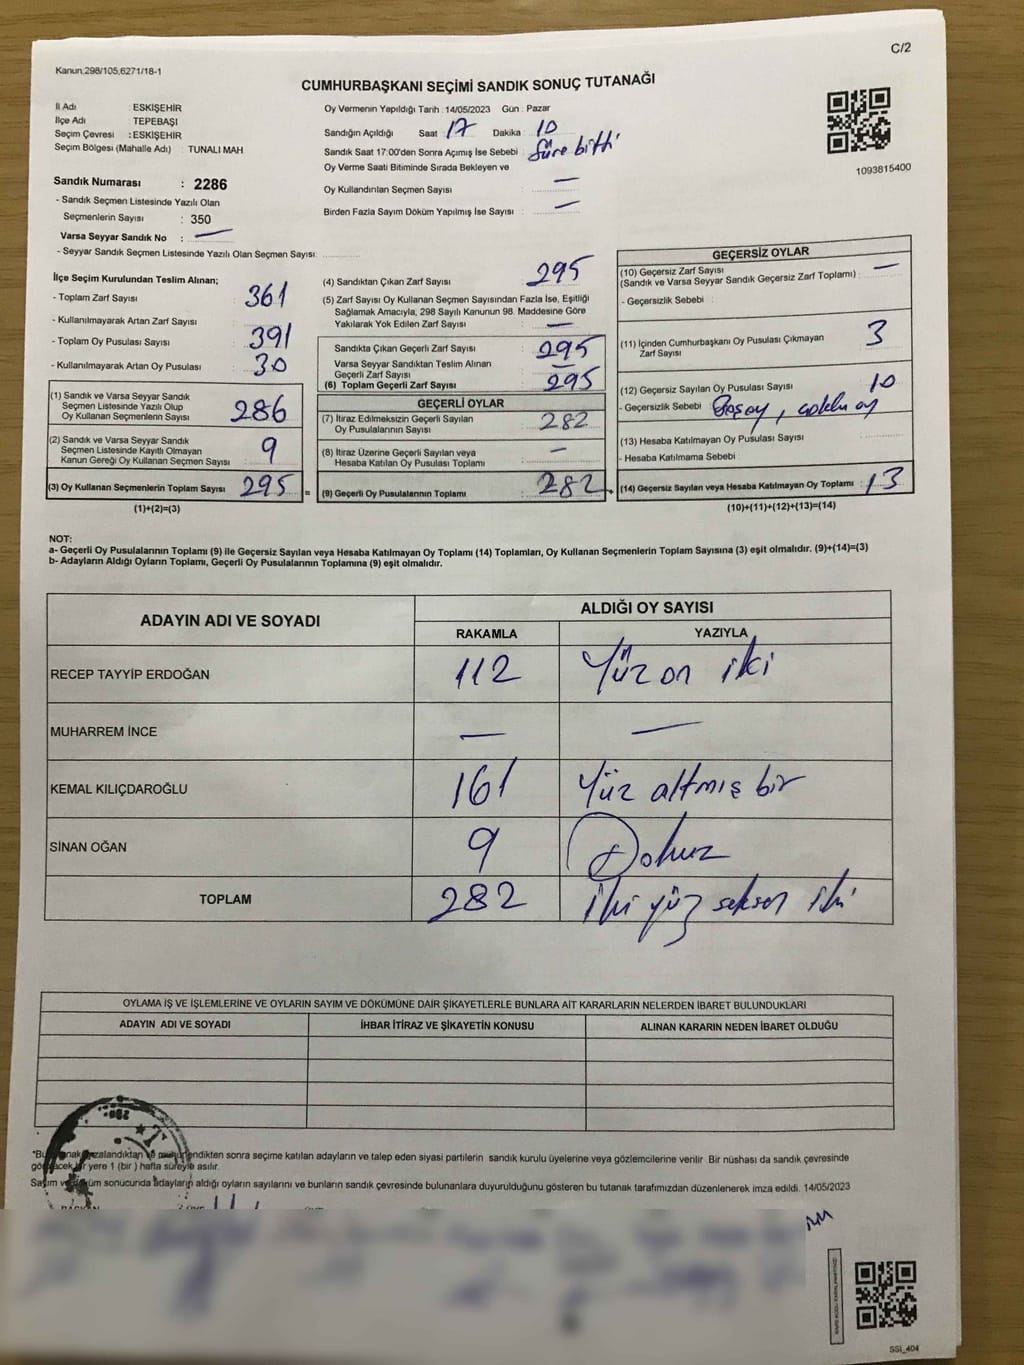 C/2
Kanun;298/105,6271/18-1
CUMHURBAŞKANI SEÇİMİ SANDIK SONUÇ TUTANAĞI
İl Adı : ESKİŞEHİR
İlçe Adı : TEPEBAŞI
Seçim Çevresi : ESKİŞEHİR
Seçim Bölgesi (Mahalle Adı) : TUNALI MAH.
Oy Vermenin Yapıldığı Tarih : 14/05/2023 Gün : Pazar
Sandığın Açıldığı Saat 17 Dakika 10
Sandık Saat 17:00'den Sonra Açımış İse Sebebi : Süre bitti
Oy Verme Saati Bitiminde Sırada Bekleyen ve
Oy Kullandırılan Seçmen Sayısı : —
Birden Fazla Sayım Döküm Yapılmış İse Sayısı : —
1093815400
Sandık Numarası : 2286
- Sandık Seçmen Listesinde Yazılı Olan
Seçmenlerin Sayısı : 350
Varsa Seyyar Sandık No : —
- Seyyar Sandık Seçmen Listesinde Yazılı Olan Seçmen Sayısı:
İlçe Seçim Kurulundan Teslim Alınan;
- Toplam Zarf Sayısı : 361
- Kullanılmayarak Artan Zarf Sayısı :
- Toplam Oy Pusulası Sayısı : 391
- Kullanılmayarak Artan Oy Pusulası : 30
(1) Sandık ve Varsa Seyyar Sandık
Seçmen Listesinde Yazılı Olup
Oy Kullanan Seçmenlerin Sayısı : 286
(2) Sandık ve Varsa Seyyar Sandık
Seçmen Listesinde Kayıtlı Olmayan
Kanun Gereği Oy Kullanan Seçmen Sayısı : 9
(3) Oy Kullanan Seçmenlerin Toplam Sayısı : 295
(1)+(2)=(3)
(4) Sandıktan Çıkan Zarf Sayısı : 295
(5) Zarf Sayısı Oy Kullanan Seçmen Sayısından Fazla İse, Eşitliği
Sağlamak Amacıyla, 298 Sayılı Kanunun 98. Maddesine Göre
Yakılarak Yok Edilen Zarf Sayısı : —
Sandıkta Çıkan Geçerli Zarf Sayısı : 295
Varsa Seyyar Sandıktan Teslim Alınan
Geçerli Zarf Sayısı : —
(6) Toplam Geçerli Zarf Sayısı : 295
GEÇERLİ OYLAR
(7) İtiraz Edilmeksizin Geçerli Sayılan
Oy Pusulalarının Sayısı : 282
(8) İtiraz Üzerine Geçerli Sayılan veya
Hesaba Katılan Oy Pusulası Toplamı : —
= (9) Geçerli Oy Pusulalarının Toplamı : 282 +
GEÇERSİZ OYLAR
(10) Geçersiz Zarf Sayısı
(Sandık ve Varsa Seyyar Sandık Geçersiz Zarf Toplamı) : —
- Geçersizlik Sebebi :
(11) İçinden Cumhurbaşkanı Oy Pusulası Çıkmayan
Zarf Sayısı : 3
(12) Geçersiz Sayılan Oy Pusulası Sayısı : 10
- Geçersizlik Sebebi : Boş oy, çoklu oy
(13) Hesaba Katılmayan Oy Pusulası Sayısı :
- Hesaba Katılmama Sebebi :
(14) Geçersiz Sayılan veya Hesaba Katılmayan Oy Toplamı : 13
(10)+(11)+(12)+(13)=(14)
NOT:
a- Geçerli Oy Pusulalarının Toplamı (9) ile Geçersiz Sayılan veya Hesaba Katılmayan Oy Toplamı (14) Toplamları, Oy Kullanan Seçmenlerin Toplam Sayısına (3) eşit olmalıdır. (9)+(14)=(3)
b- Adayların Aldığı Oyların Toplamı, Geçerli Oy Pusulalarının Toplamına (9) eşit olmalıdır.
ADAYIN ADI VE SOYADI ALDIĞI OY SAYISI
RAKAMLA YAZIYLA
RECEP TAYYİP ERDOĞAN 112 Yüz on iki
MUHARREM İNCE — —
KEMAL KILIÇDAROĞLU 161 Yüz altmış bir
SİNAN OĞAN 9 Dokuz
TOPLAM 282 iki yüz seksen iki
OYLAMA İŞ VE İŞLEMLERİNE VE OYLARIN SAYIM VE DÖKÜMÜNE DAİR ŞİKAYETLERLE BUNLARA AİT KARARLARIN NELERDEN İBARET BULUNDUKLARI
ADAYIN ADI VE SOYADI İHBAR İTİRAZ VE ŞİKAYETİN KONUSU ALINAN KARARIN NEDEN İBARET OLDUĞU
sonra seçime katılan adayların ve talep eden siyasi partilerin sandık kurulu üyelerine veya gözlemcilerine verilir. Bir nüshası da sandık çevresinde
yere 1 (bir ) hafta süreyle asılır.
Sayım ve döküm sonucunda adayların aldığı oyların sayılarını ve bunların sandık çevresinde bulunanlara duyurulduğunu gösteren bu tutanak tarafımızdan düzenlenerek imza edildi. 14/05/2023
SSi_404